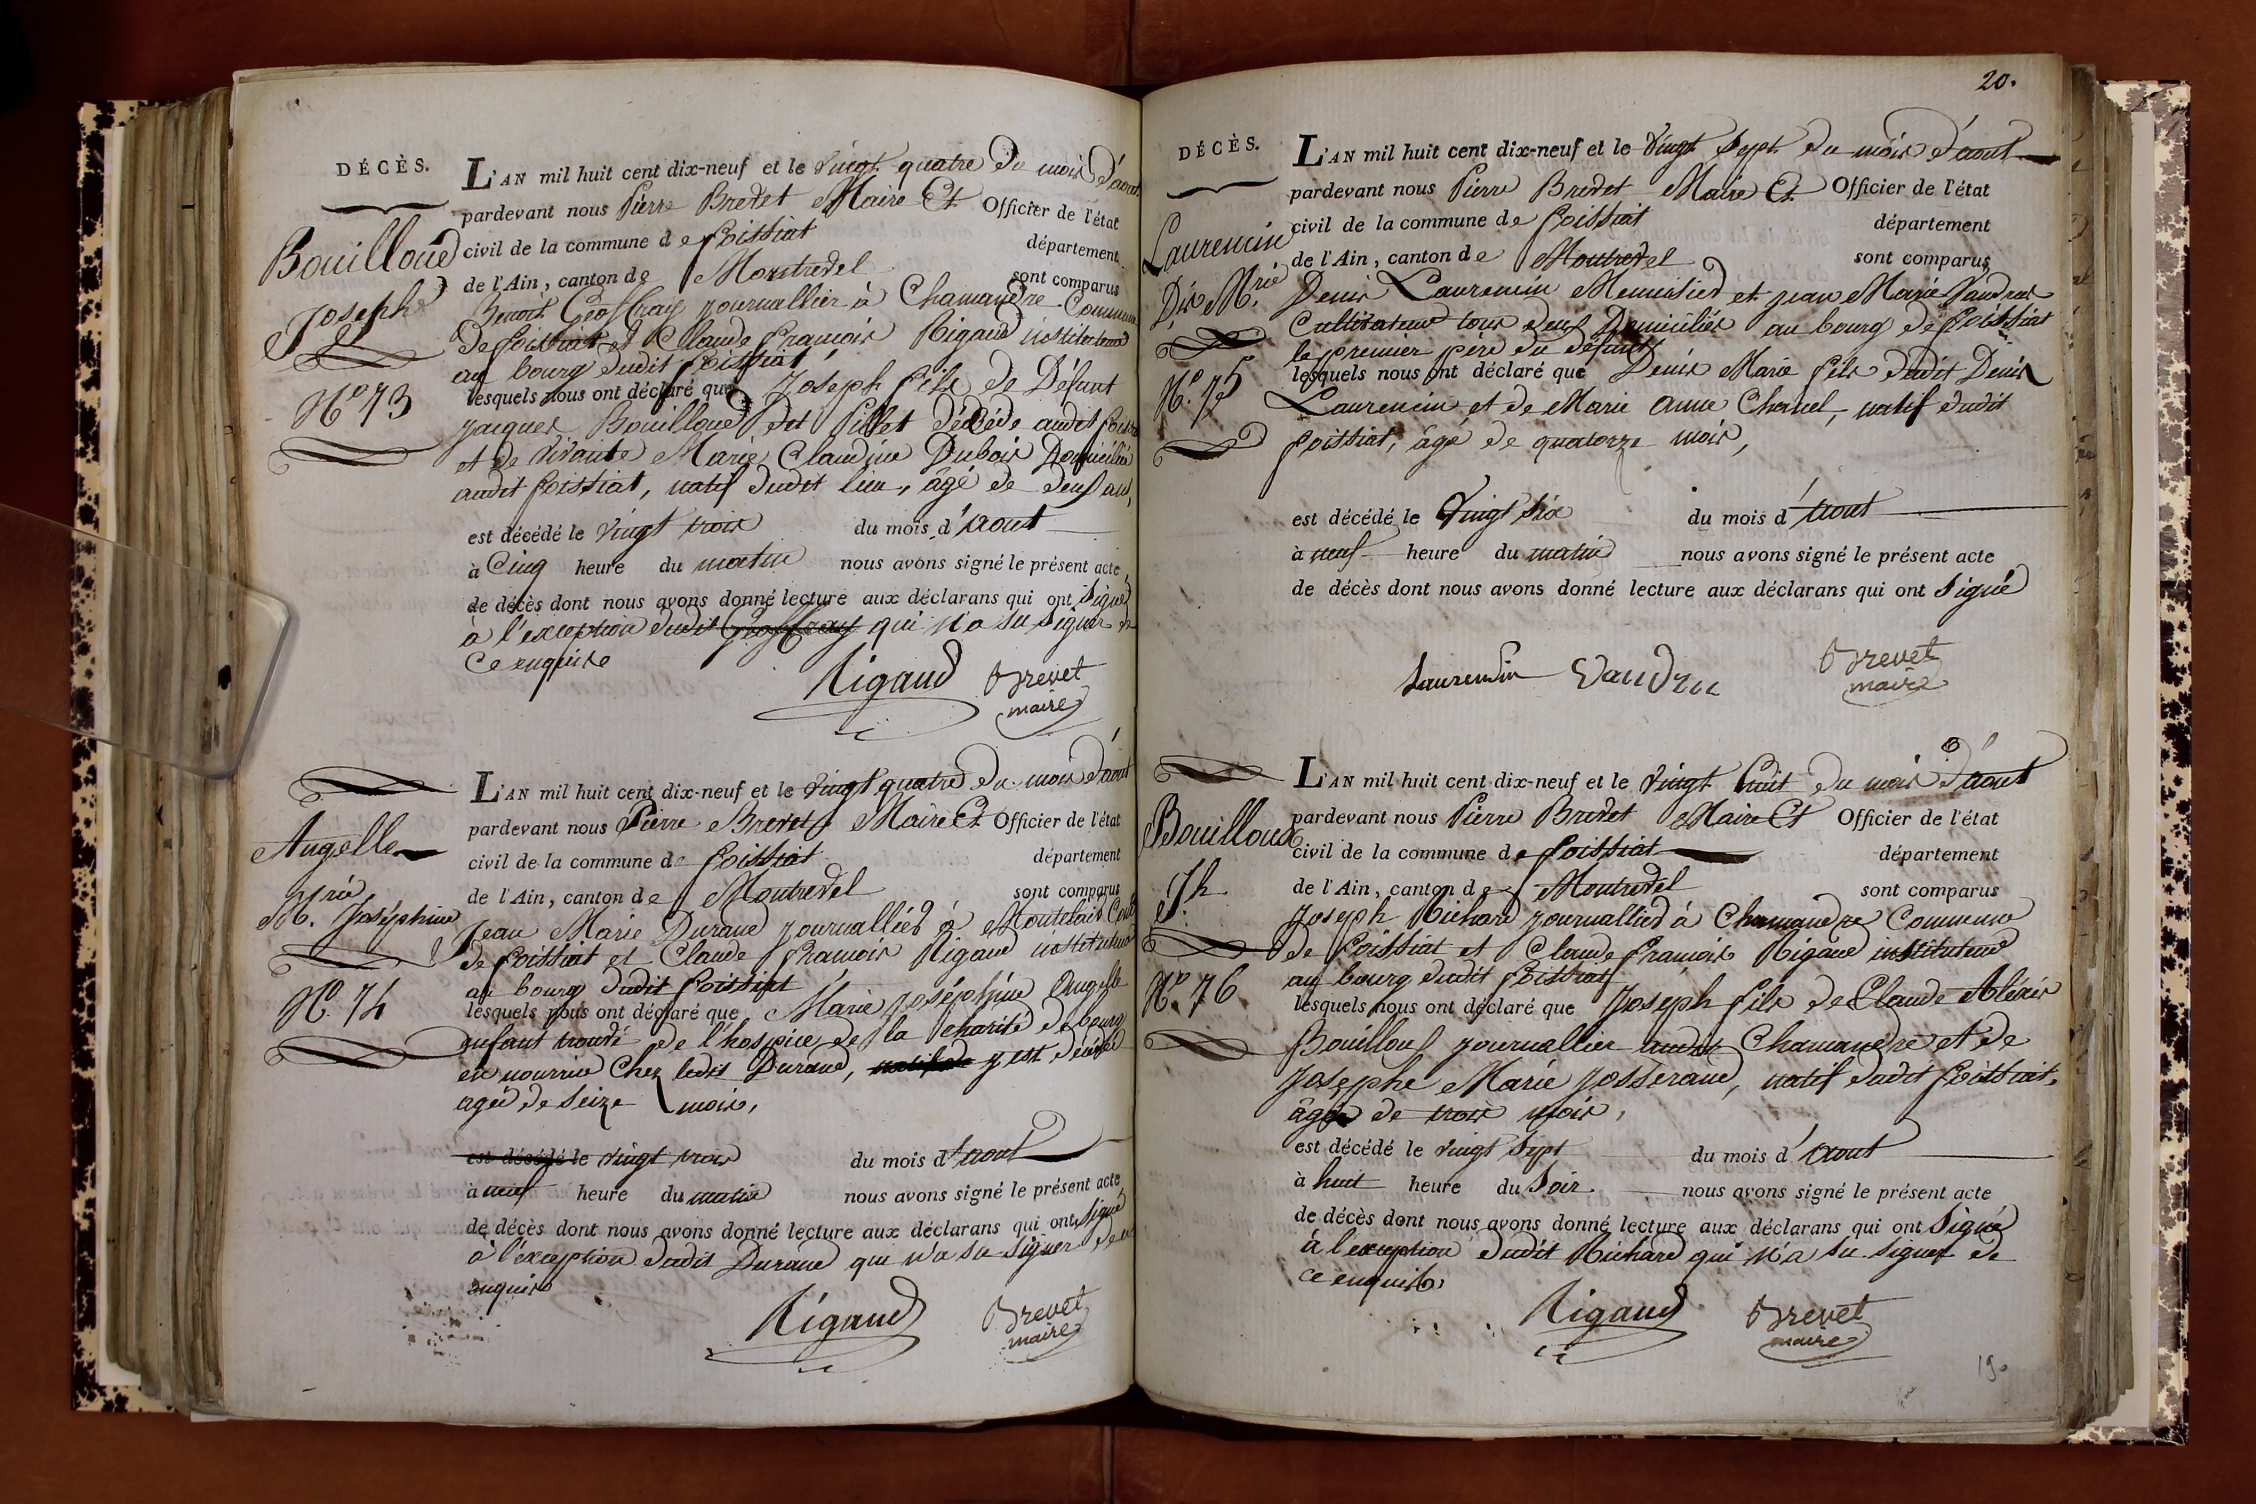 DÉCÈS.
Bouilloud
Joseph
N.º 73
L'AN mil huit cent dix-neuf et le vingt quatre du mois d'aout
pardevant nous Pierre Brevet Maire Et Officier de l'état
civil de la commune de foissiat département
de l'Ain, canton de Montrevel sont comparus
Benoit Geoffray journallier à Chamandre Commune
de foissiat et Claude françois Rigaud instituteur
au bourg dudit foissiat
lesquels nous ont déclaré que Joseph fils de Défunt
jacques Bouilloud dit Pillet décédé audit
et de vivante Marie Claudine Dubois Domiciliée
audit foissiat, natif dudit lieu, âgé de deux ans,
est décédé le vingt trois du mois d'aout
à Cinq heure du matin nous avons signé le présent acte
de décès dont nous avons donné lecture aux déclarans qui ont signé
à l'exception dudit Geoffray qui n'a su signer de
ce enquise
Rigaud Brevet
maire
Angelle
M.rie Joséphine
N.º 74
L'AN mil huit cent dix-neuf et le vingt quatre du mois d'aout
pardevant nous Pierre Brevet Maire Et Officier de l'état
civil de la commune de foissiat département
de l'Ain, canton de Montrevel sont comparus
Jean Marie Durand journallier à
de foissiat et Claude françois Rigaud instituteur
au bourg dudit foissiat
lesquels nous ont déclaré que Marie joséphine Angelle
enfant trouvé de l'hospice de la charité de bourg
en nourrice chez ledit Durand, y est décédée
agée de seize mois,
est décédé le vingt trois du mois d'aout
à neuf heure du matin nous avons signé le présent acte
de décès dont nous avons donné lecture aux déclarans qui ont signé
à l'exception dudit Durand qui n'a su signer de ce
enquis
Rigaud Brevet
maire
20.
DÉCÈS.
Laurencin
D.is M.rie
N.º 75
L'AN mil huit cent dix-neuf et le vingt sept du mois d'aout
pardevant nous Pierre Brevet Maire Et Officier de l'état
civil de la commune de foissiat département
de l'Ain, canton de Montrevel sont comparus
Denis Laurencin Menuisier et jean Marie Vandru
Cultivateur tous deux Domiciliés au bourg de foissiat
le premier père du défunt
lesquels nous ont déclaré que Denis Marie fils dudit Denis
Laurencin et de Marie anne Chanel, natif dudit
foissiat, âgé de quatorze mois,
est décédé le vingt six du mois d'aout
à neuf heure du matin nous avons signé le présent acte
de décès dont nous avons donné lecture aux déclarans qui ont signé
Laurencin Vandru Brevet
maire
Bouilloux
J.h
N.º 76
L'AN mil huit cent dix-neuf et le vingt huit du mois d'aout
pardevant nous Pierre Brevet Maire Et Officier de l'état
civil de la commune de foissiat département
de l'Ain, canton de Montrevel sont comparus
Joseph Richard journallier à Chamandre Commune
de foissiat et Claude françois Rigaud instituteur
au bourg dudit foissiat
lesquels nous ont déclaré que Joseph fils de Claude Aléxis
Bouilloux journallier audit Chamandre et de
Josephe Marie Josserand, natif dudit foissiat,
âgé de trois mois,
est décédé le vingt sept du mois d'aout
à huit heure du soir nous avons signé le présent acte
de décès dont nous avons donné lecture aux déclarans qui ont signé
à l'exception dudit Richard qui n'a su signer de
ce enquis
Rigaud Brevet
maire
19.